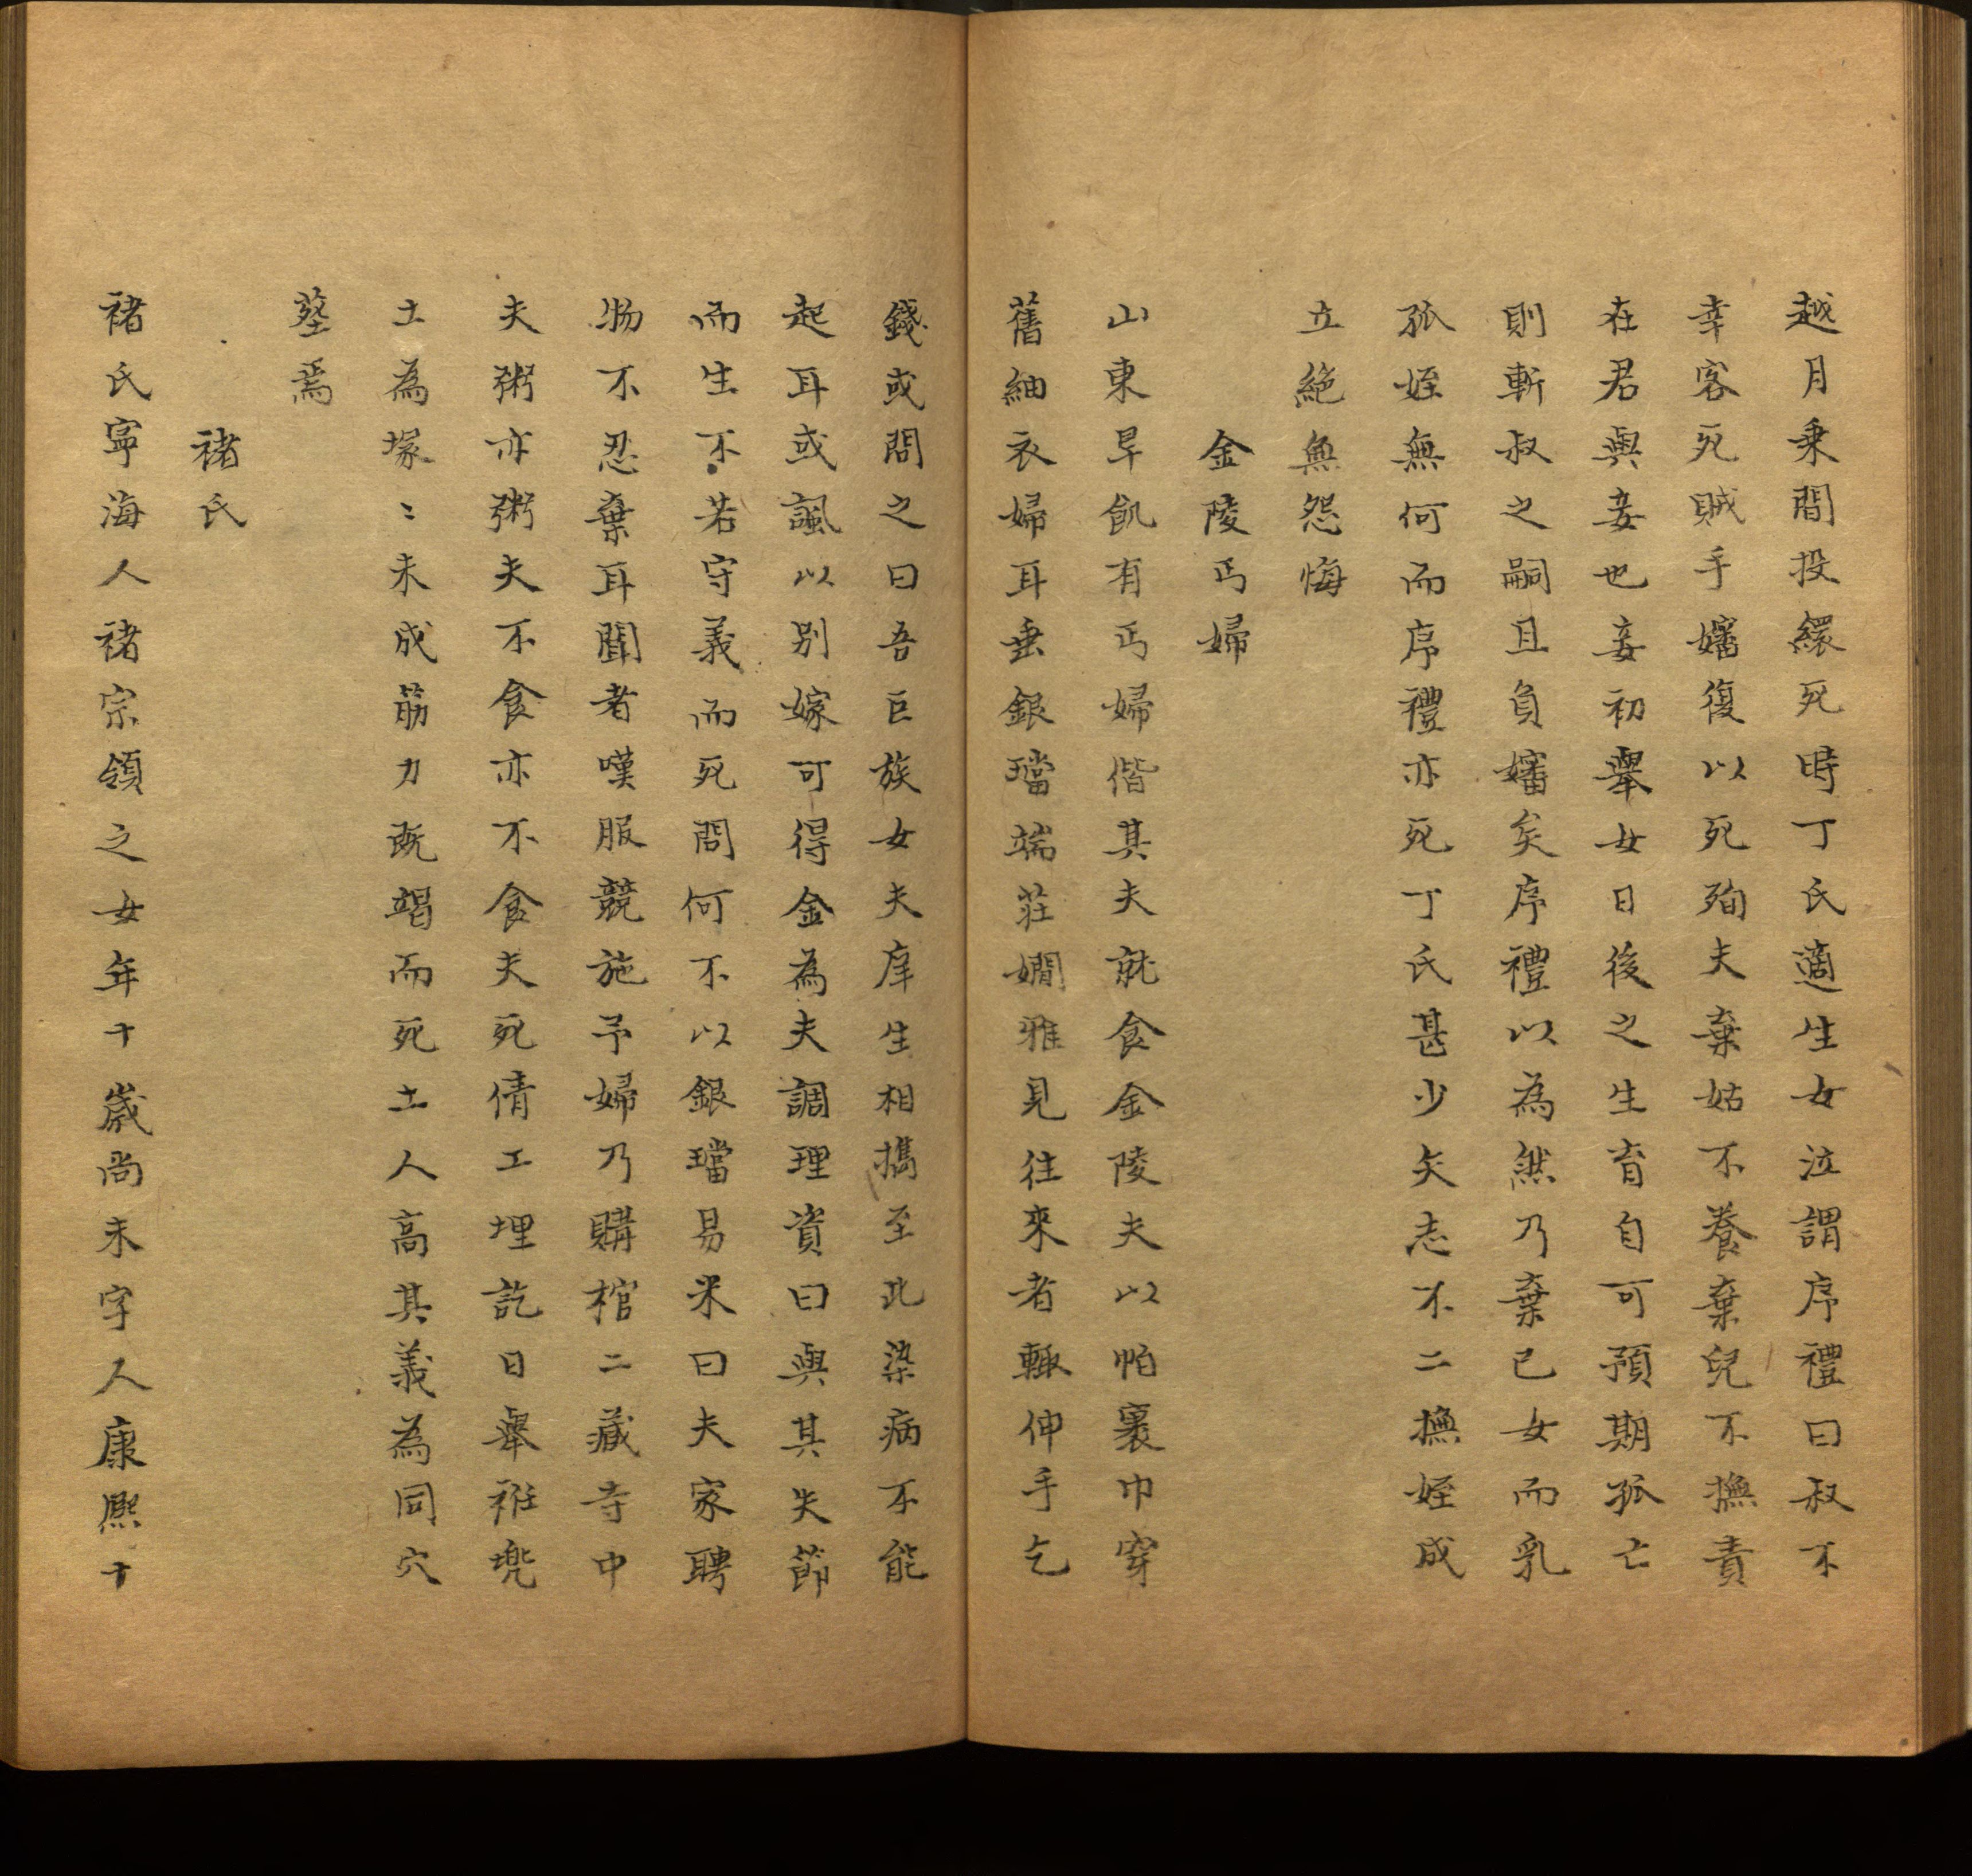 越月乗間投繯死時丁氏適生女泣謂序禮曰叔不
幸客死賊手嬸復以死殉夫棄姑不養棄兒不撫責
在君與妾也妾初舉女日後之生育自可預期孤亡
則斬叔之嗣且負嬸矣序禮以為然乃棄已女而乳
孤姪無何而序禮亦死丁氏甚少矢志不二撫姪成
立絶無怨悔
金陵丐婦
山東旱飢有丐婦偕其夫就食金陵夫以帕裹巾穿
舊紬衣婦耳垂銀璫端莊嫺雅見往來者輒伸手乞
錢或問之曰吾巨族女夫庠生相攜至此染病不能
起耳或諷以別嫁可得金為夫調理資曰與其失節
而生不若守義而死問何不以銀璫易米曰夫家聘
物不忍棄耳聞者嘆服競施予婦乃購棺二藏寺中
夫粥亦粥夫不食亦不食夫死倩工埋訖日舉裙兜
土為塚〻未成筋力既竭而死土人高其義為同穴
塟焉
褚氏
褚氏寧海人褚宗領之女年十歲尚未字人康熙十